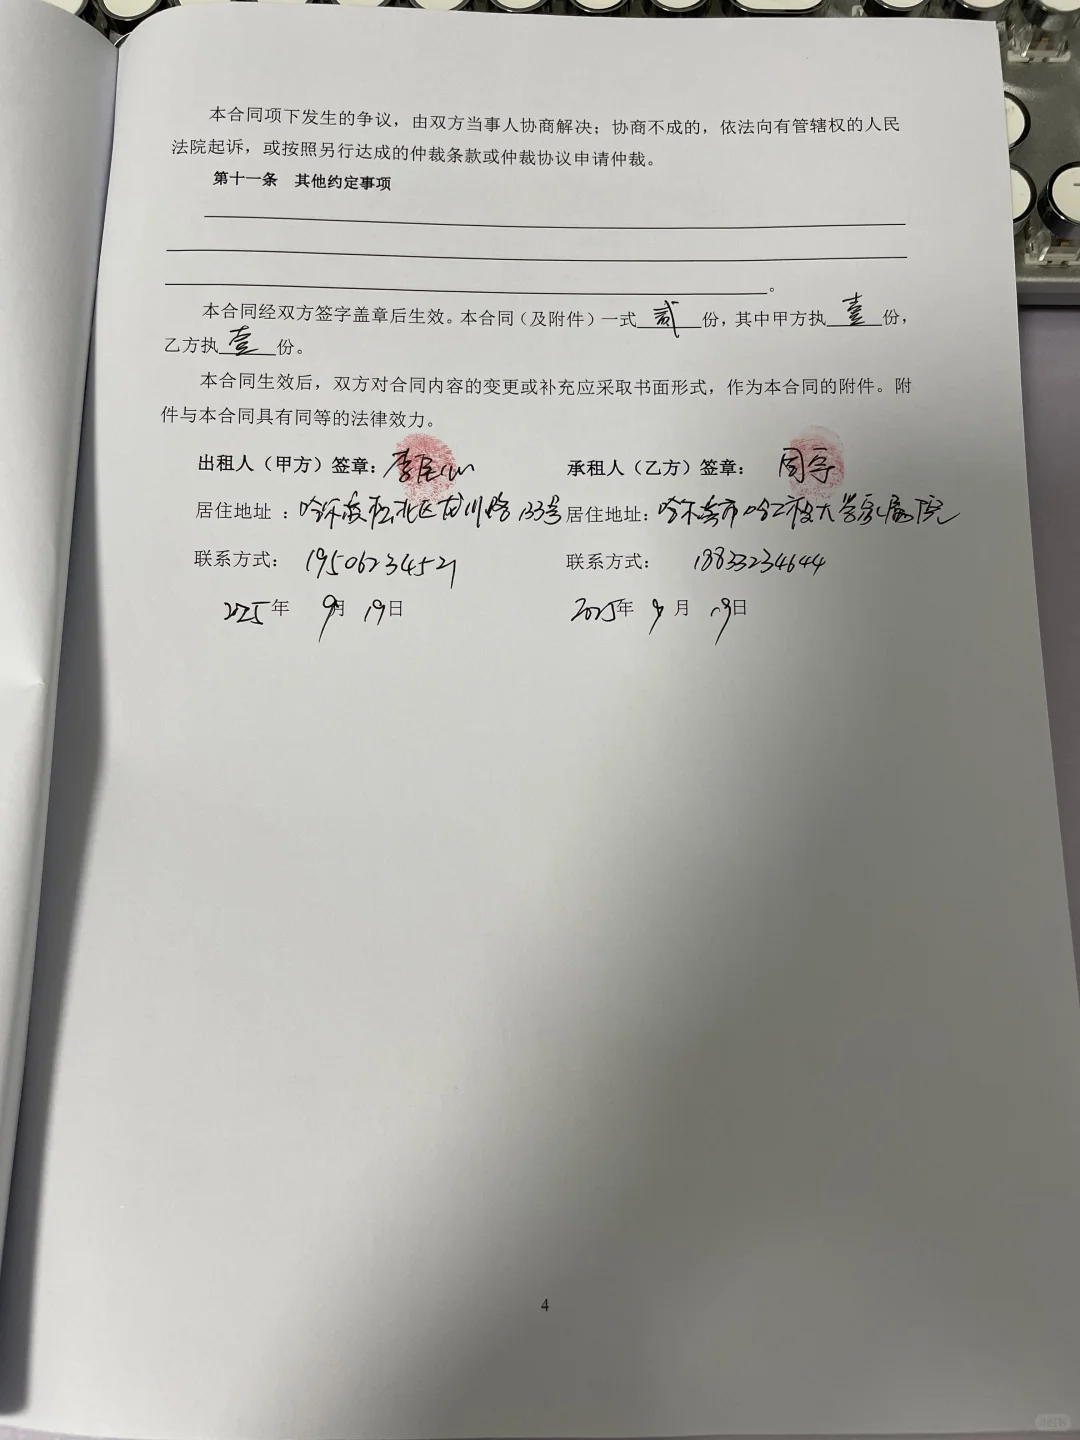 本合同项下发生的争议，由双方当事人协商解决；协商不成的，依法向有管辖权的人民
法院起诉，或按照另行达成的仲裁条款或仲裁协议申请仲裁。
第十一条 其他约定事项
。
本合同经双方签字盖章后生效。本合同（及附件）一式贰份，其中甲方执壹份，
乙方执壹份。
本合同生效后，双方对合同内容的变更或补充应采取书面形式，作为本合同的附件。附
件与本合同具有同等的法律效力。
出租人（甲方）签章：李 承租人（乙方）签章：周宇
居住地址：哈尔滨松北区龙川路133号 居住地址：哈尔滨市哈工程大学家属院
联系方式：19506234521 联系方式：18833234644
2025年 9月 19日 2025年 9月 19日
4